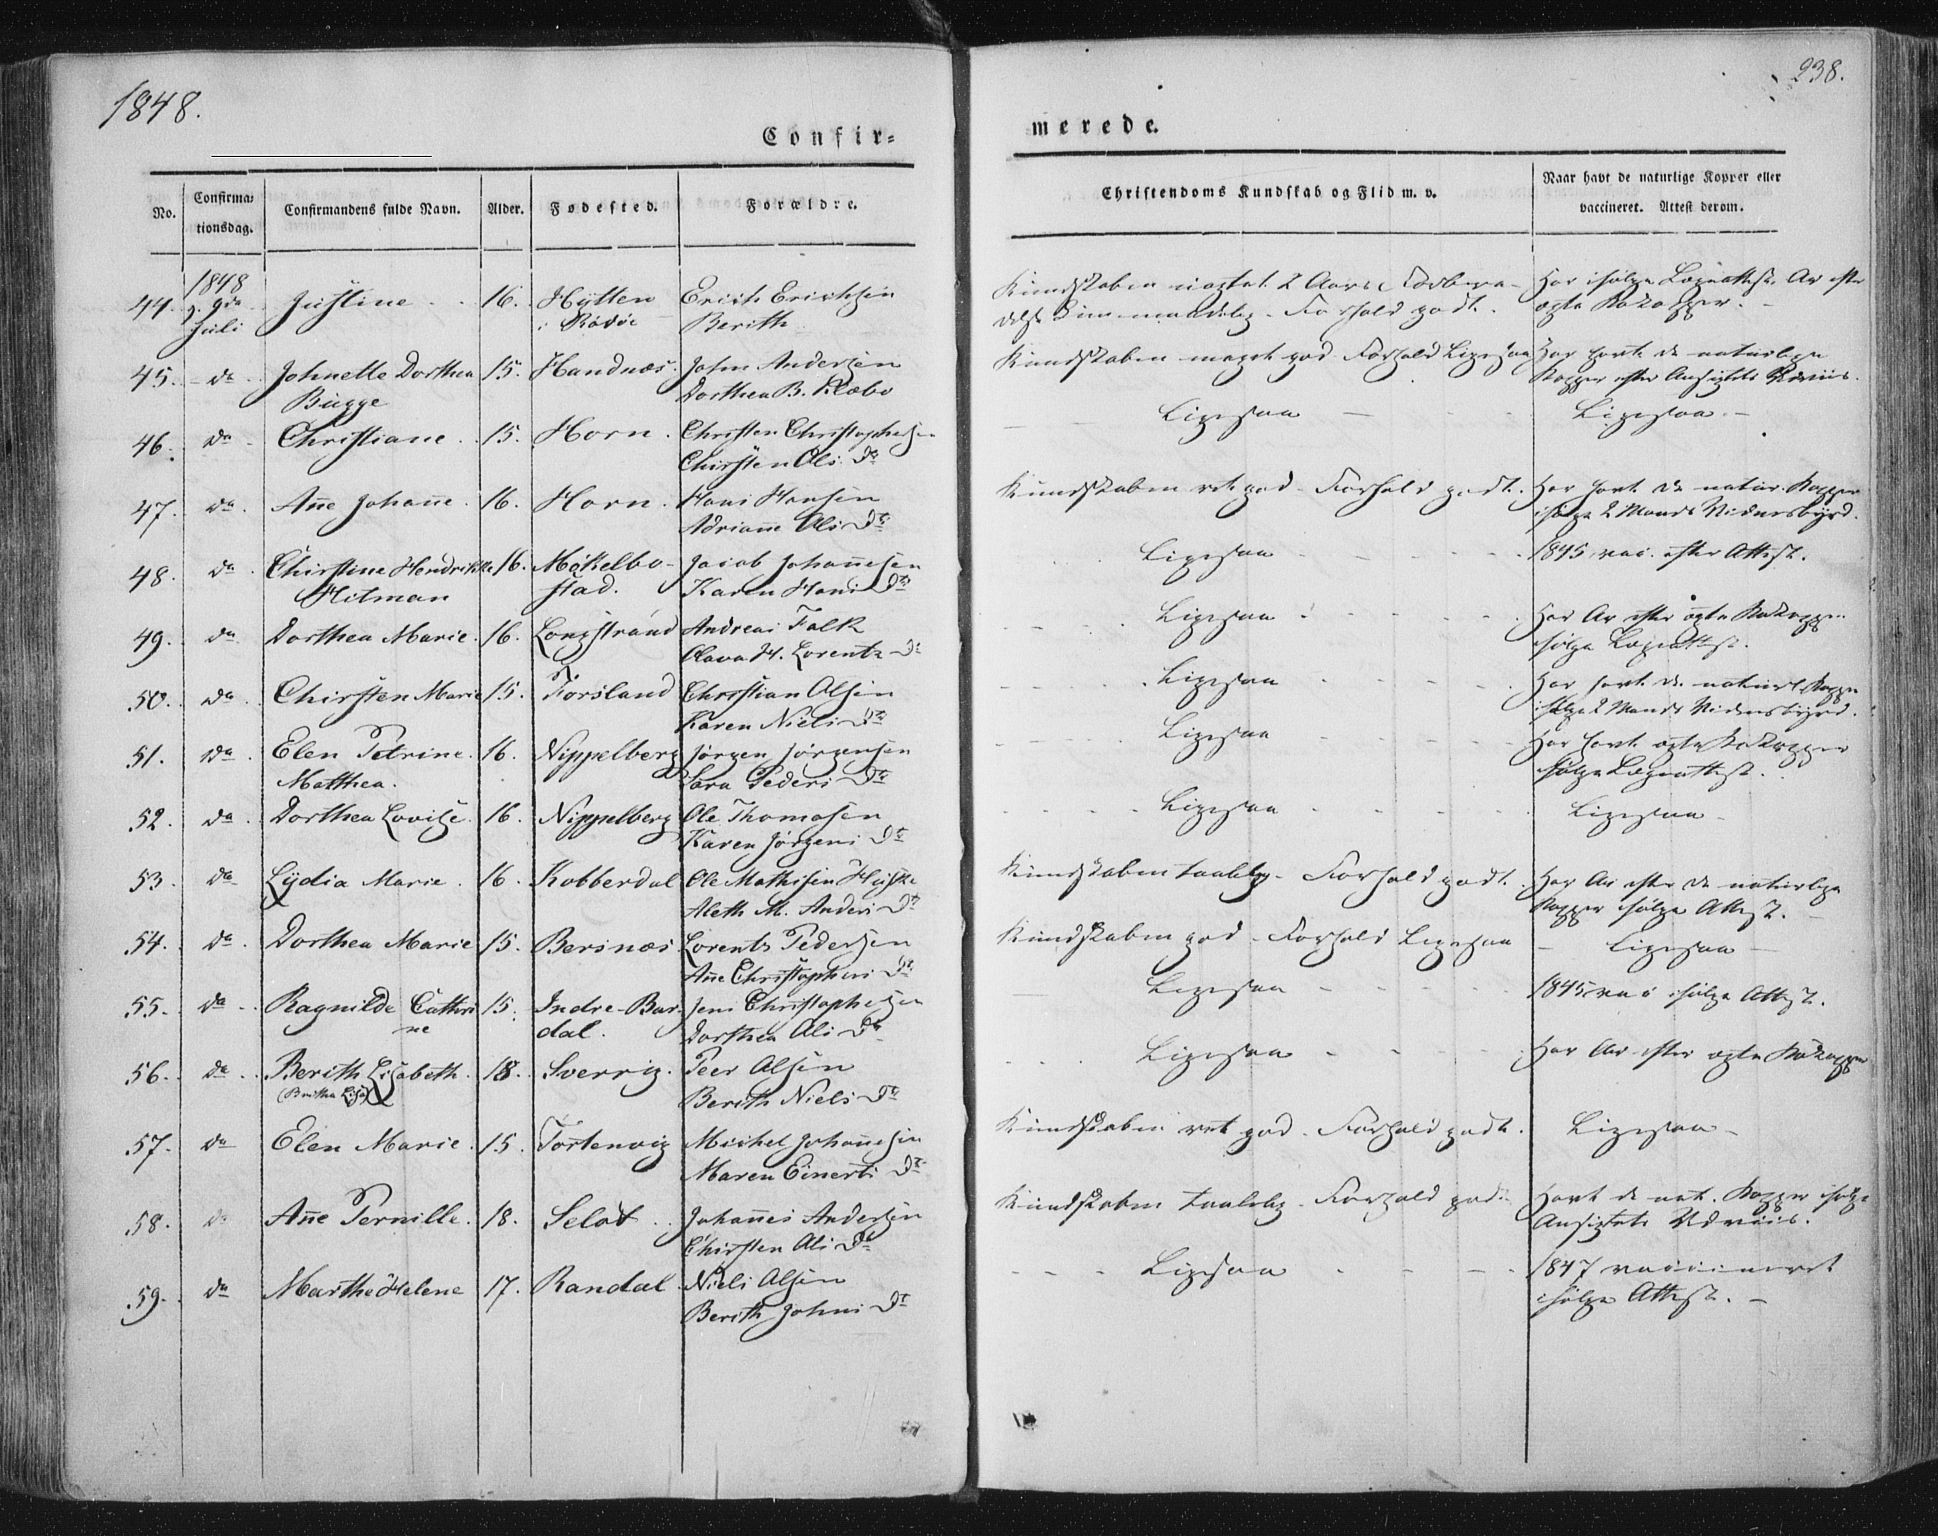 1848.
238.
Confir=
merede.
No.
Confirma=
tionsdag.
Confirmandens fulde Navn.
Alder.
Fødested.
Forældre.
Christendoms Kundskab og Flid m. v.
Naar havt de naturlige Kopper eller
vaccineret. Attest derom.
1848
44. d. 9de Justine 16. Hytten Erich Erichsen
Juli i Rødøe Berith
Forhold godt.
ægte Kokopper.
45. do Johnelle Dorthea 15. Handnæs. John Andersen
Bugge Dorthea B. Klæbo
Kundskaben meget god. Forhold Ligesaa
Har havt de naturlige
Kopper efter Ansigtets Udviis.
46. do Christiane 15. Horn. Christen Christophersen
Chirsten Ols Dr
Ligesaa Ligesaa
47. do Añe Johañe 16. Horn. Hans Hansen
Adriane Ols Dr
Kundskaben ret god. Forhold godt. Har havt de natur. Kopper
ifølge 2 Mænds Vidnesbyrd.
48. do Chirstine Hendrikke 16. Møkelbo-
Hitman stad. Jacob Johañesen
Karen Hans Dr
Ligesaa 1845 vac. efter Attest.
49. do Dorthea Marie. 16. Longstrand Andreas Falk
Olava H. Lorentz Dr
Ligesaa Har Ar efter ægte Kokopper
ifølge Lægeattest.
50. do Chirsten Marie 15. Forsland Christian Olsen
Karen Niels Dr
Ligesaa Har havt de naturl. Kopper
ifølge 2 Mænds Vidnesbyrd.
51. do Elen Petrine 16. Nippelberg Jørgen Jørgensen
Matthea. Sara Peders Dr
Ligesaa Har havt ægte Kokopper
ifølge Lægeattest.
52. do Dorthea Lovise. 16. Nippelberg Ole Thomasen
Karen Jørgens Dr
Ligesaa Ligesaa
53. do Lydia Marie. 16. Kobberdal Ole Mathisen
Aleth M. Anders Dr
Kundskaben taalelig. Forhold godt. Har Ar efter de naturlige
Kopper ifølge Attest.
54. do Dorthea Marie 15. Bersnæs Lorents Pedersen
Añe Christophers Dr
Kundskaben god. Forhold Ligesaa Ligesaa
55. do Ragnilde Cathri 15. Indre-Bar- Jens Christophersen
ne dal. Dorthea Ols Dr
Ligesaa 1845 vac ifølge Attest.
56. do Berith Lisabeth. 18. Sverrig. Peer Olsen
(Beritha Lisa) Berith Niels Dr
Ligesaa Har Ar efter ægte Kokopper
57. do Elen Marie. 15. Tortenvig Michel Johañesen
Maren Einerts Dr
Kundskaben ret god. Forhold godt. Ligesaa
58. do Añe Pernille. 18. Selot Johañes Andersen
Chirsten Ols Dr
Kundskaben taalelig. Forhold godt Havt de nat. Kopper ifølge
Ansigtets Udviis.
59. do Marthe Helene 17. Randal Niels Olsen
Berith Johns Dr
Ligesaa 1847 vaccineret
ifølge Attest.